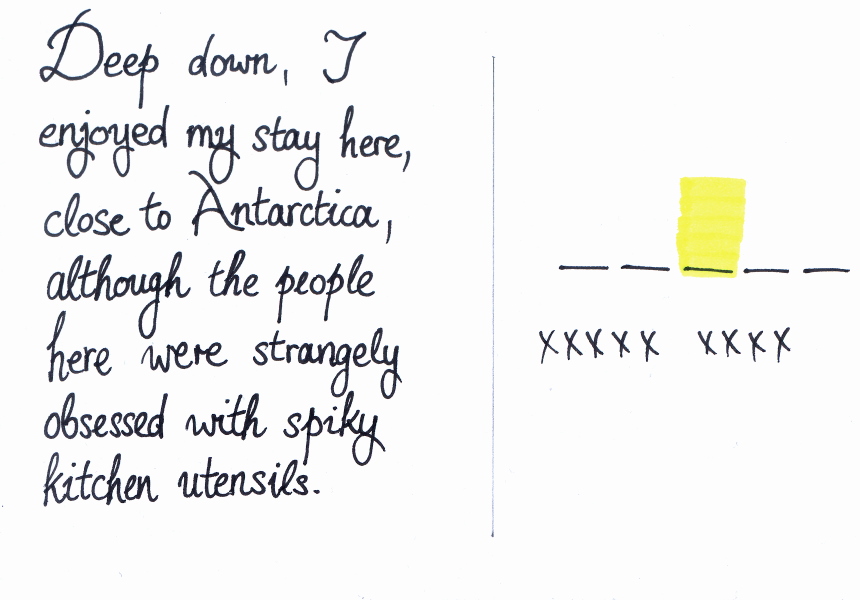 Deep down, I
enjoyed my stay here,
close to Antarctica,
although the people
here were strangely
obsessed with spiky
kitchen utensils.
_ _ _ _ _
XXXXX XXXX